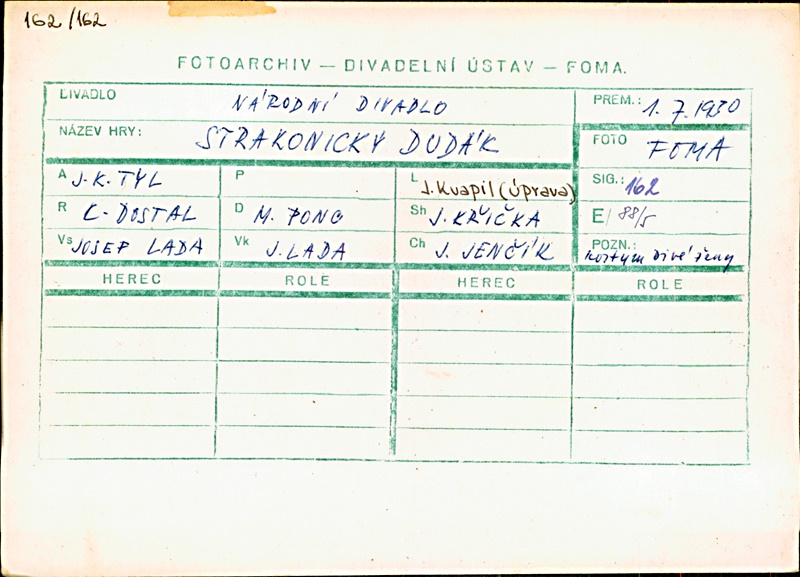 162/162
FOTOARCHIV — DIVADELNÍ ÚSTAV — FOMA.
DIVADLO NÁRODNÍ DIVADLO PREM.: 1.7.1930
NÁZEV HRY: STRAKONICKÝ DUDÁK FOTO FOMA
A J.K. TYL P L J. Kvapil (úprava) SIG.: 162
R K. DOSTAL D M. PONC Sh J. KŘIČKA E/ 88/5
Vs JOSEF LADA Vk J. LADA Ch J. JENČÍK POZN.: kostym Divé ženy
HEREC ROLE HEREC ROLE